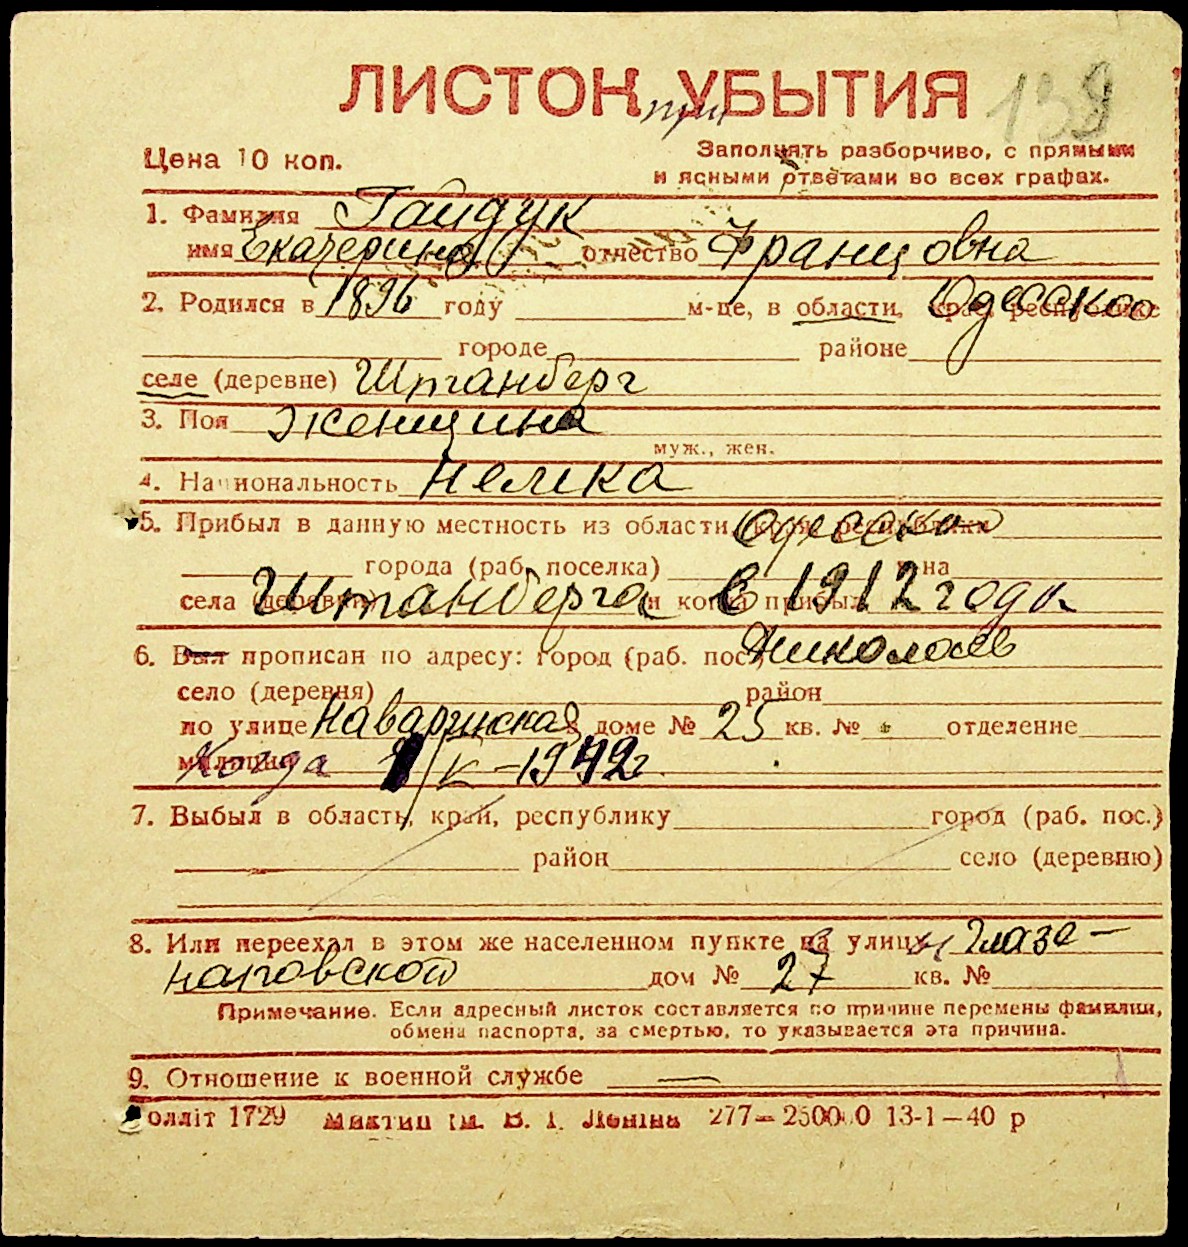 ЛИСТОК УБЫТИЯ
при
138
Цена 10 коп.
Заполнять разборчиво, с прямыми
и ясными ответами во всех графах.
1. Фамилия Гайдук
имя Екатерина отчество Францовна
2. Родился в 1896 году м-це, в области, крае, республике Одесской
городе районе
селе (деревне) Штанберг
3. Пол женщина
муж., жен.
4. Национальность немка
5. Прибыл в данную местность из области, края, республики Одесской
города (раб. поселка) района
села (деревни) Штанберга и когда прибыл в 1912 году
6. Был прописан по адресу: город (раб. пос.) Николаев
село (деревня) район
по улице Наваринская в доме № 25 кв. № отделение
милиции Когда 1/X-1942г.
7. Выбыл в область, край, республику город (раб. пос.)
район село (деревню)
8. Или переехал в этом же населенном пункте на улицу Глазе-
наповской дом № 27 кв. №
Примечание. Если адресный листок составляется по причине перемены фамилии,
обмена паспорта, за смертью, то указывается эта причина.
9. Отношение к военной службе —
олліт 1729 ім. В. І. Леніна 277—250000 13-1—40 р